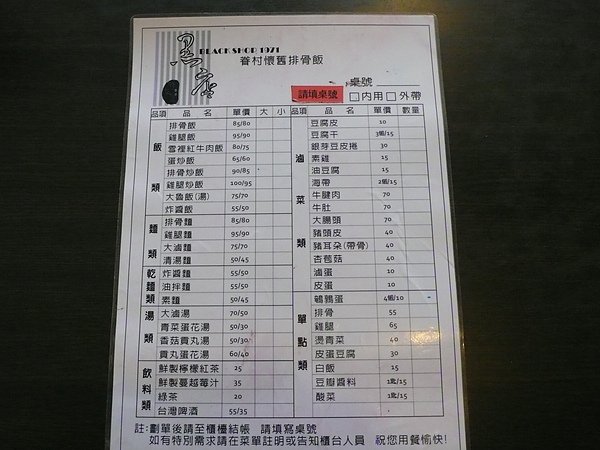 黑店
BLACKSHOP 1971
眷村懷舊排骨飯
桌號
請填桌號 □內用□外帶
品項 品名 單價 大 小
飯類
排骨飯 85/80
雞腿飯 95/90
雪裡紅牛肉飯 80/75
蛋炒飯 65/60
排骨炒飯 90/85
雞腿炒飯 100/95
大魯飯(湯) 75/70
炸醬飯 55/50
麵類
排骨麵 85/80
雞腿麵 95/90
大滷麵 75/70
清湯麵 50/45
乾麵類
炸醬麵 55/50
油拌麵 55/50
素麵 50/45
湯類
大滷湯 70/50
青菜蛋花湯 50/30
香菇貢丸湯 50/30
貢丸蛋花湯 60/40
飲料類
鮮製檸檬紅茶 25
鮮製蔓越莓汁 35
綠茶 20
台灣啤酒 55/35
品項 品名 單價 數量
滷菜類
豆腐皮 10
豆腐干 3個/15
銀芽豆皮捲 30
素雞 15
油豆腐 15
海帶 2個/15
牛腱肉 70
牛肚 70
大腸頭 70
豬頭皮 40
豬耳朵(帶骨) 40
杏苞菇 40
滷蛋 10
皮蛋 10
鵪鶉蛋 4個/10
單點類
排骨 55
雞腿 65
燙青菜 40
皮蛋豆腐 30
白飯 15
豆瓣醬料 1匙/15
酸菜 1匙/15
註:劃單後請至櫃檯結帳 請填寫桌號
如有特別需求請在菜單註明或告知櫃台人員 祝您用餐愉快!